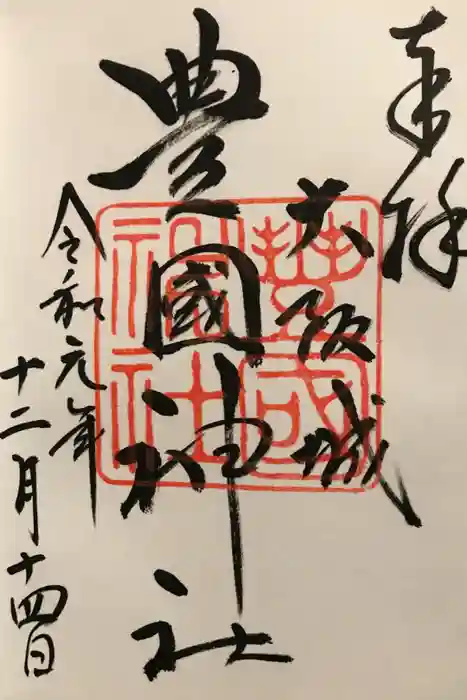 奉拝
大阪城
豊國神社
令和元年
十二月十四日
豊國
神社